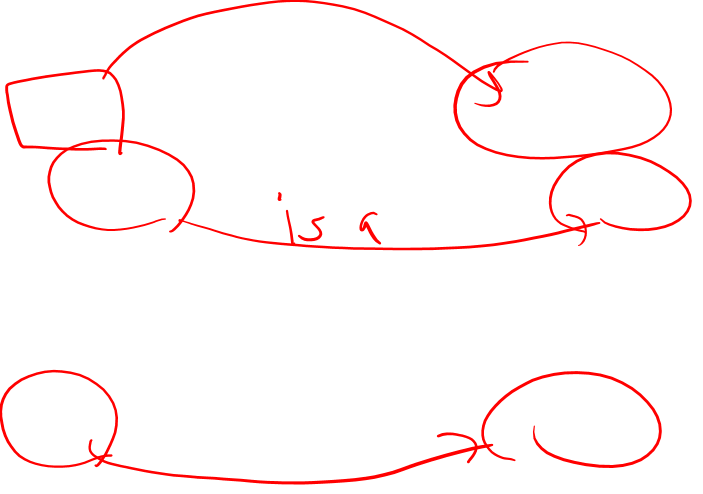 is a